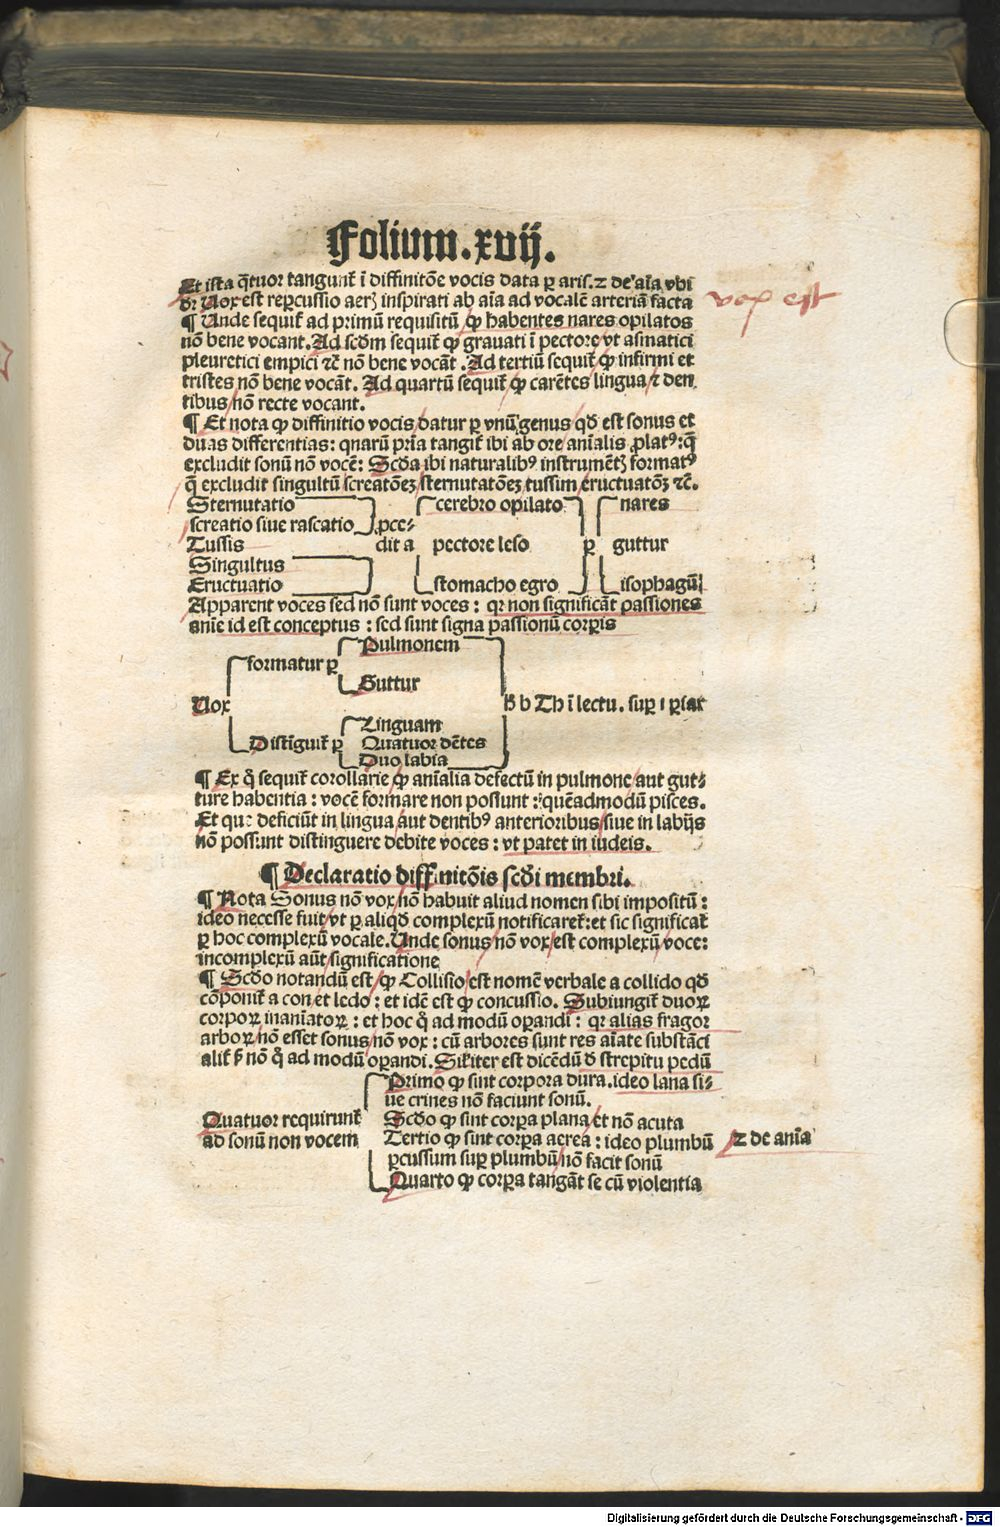 Folium.xvij.
Et ista q̃tuor tangunt̃ ĩ diffinitõe vocis data ꝑ aris. ⁊ de aĩa vbi
dr̃ Uox est reꝑcussio aerꝫ inspirati ab aĩa ad vocalẽ arteriã facta
vox est
¶ Unde sequit̃ ad primũ requisitũ ꝙ habentes nares opilatos
nõ bene vocant. Ad scdm̃ sequit̃ ꝙ grauati ĩ pectore vt asmatici
pleuretici empici ⁊c̃ nõ bene vocãt. Ad tertiũ sequit̃ ꝙ infirmi et
tristes nõ bene vocãt. Ad quartũ sequit̃ ꝙ carẽtes lingua ⁊ den
tibus nõ recte vocant.
¶ Et nota ꝙ diffinitio vocis datur ꝑ vnũ genus qd̃ est sonus et
duas differentias: qnarũ pr̃ia tangit̃ ibi ab ore anĩalis ꝓlatꝰ: q̃
excludit sonũ nõ vocẽ: Scd̃a ibi naturalibꝰ instrumẽtꝫ formatꝰ
q̃ excludit singultũ screatõeꝫ sternutatõeꝫ tussim eructuatõꝫ ⁊c̃.
Sternutatio cerebro opilato nares
screatio siue rascatio ꝓce-
Tussis dit a pectore leso ꝑ guttur
Singultus
Eructuatio stomacho egro isophagũ
Apparent voces sed nõ sunt voces: qr non significãt passiones
anĩe id est conceptus: sed sunt signa passionũ corꝑis
Pulmonem
formatur ꝑ
Guttur
Uox b Th ĩ lectu. suꝑ ı ꝑ
Linguam
Distĩguit̃ ꝑ Quatuor dẽtes
Duo labia
¶ Ex q̃ sequit̃ corollarie ꝙ anĩalia defectũ in pulmone aut gut-
ture habentia: vocẽ formare non possunt: quẽadmodũ pisces.
Et que deficiũt in lingua aut dentibꝰ anterioribus siue in labijs
nõ possunt distinguere debite voces: vt patet in iudeis.
¶ Declaratio diffinitõis scd̃i membri.
¶ Nota Sonus nõ vox nõ habuit aliud nomen sibi impositũ:
ideo necesse fuit vt ꝑ aliqd̃ complexũ notificaret̃: et sic significat̃
ꝑ hoc complexũ vocale. Unde sonus nõ vox est complexũ voce:
incomplexũ aũt significatione
¶ Scd̃o notandũ est ꝙ Collisio est nomẽ verbale a collido qd̃
cõponit̃ a con et ledo: et idẽ est ꝙ concussio. Subiungit̃ duoꝝ
corpoꝝ inanĩatoꝝ: et hoc q̃ ad modũ oꝑandi: qr alias fragor
arboꝝ nõ esset sonus nõ vox: cũ arbores sunt res aĩate substãci
alit̃ s̃ nõ q̃ ad modũ oꝑandi. Silĩter est dicẽdũ d̃ strepitu pedũ
Primo ꝙ sint corpora dura. ideo lana si-
ue crines nõ faciunt sonũ.
Quatuor requirunt̃ Scd̃o ꝙ sint corꝑa plana et nõ acuta
ad sonũ non vocem Tertio ꝙ sint corꝑa aerea: ideo plumbũ ⁊ de anĩa
ꝑcussum suꝑ plumbũ nõ facit sonũ
Quarto ꝙ corꝑa tangãt se cũ violentia
Digitalisierung gefördert durch die Deutsche Forschungsgemeinschaft - DFG